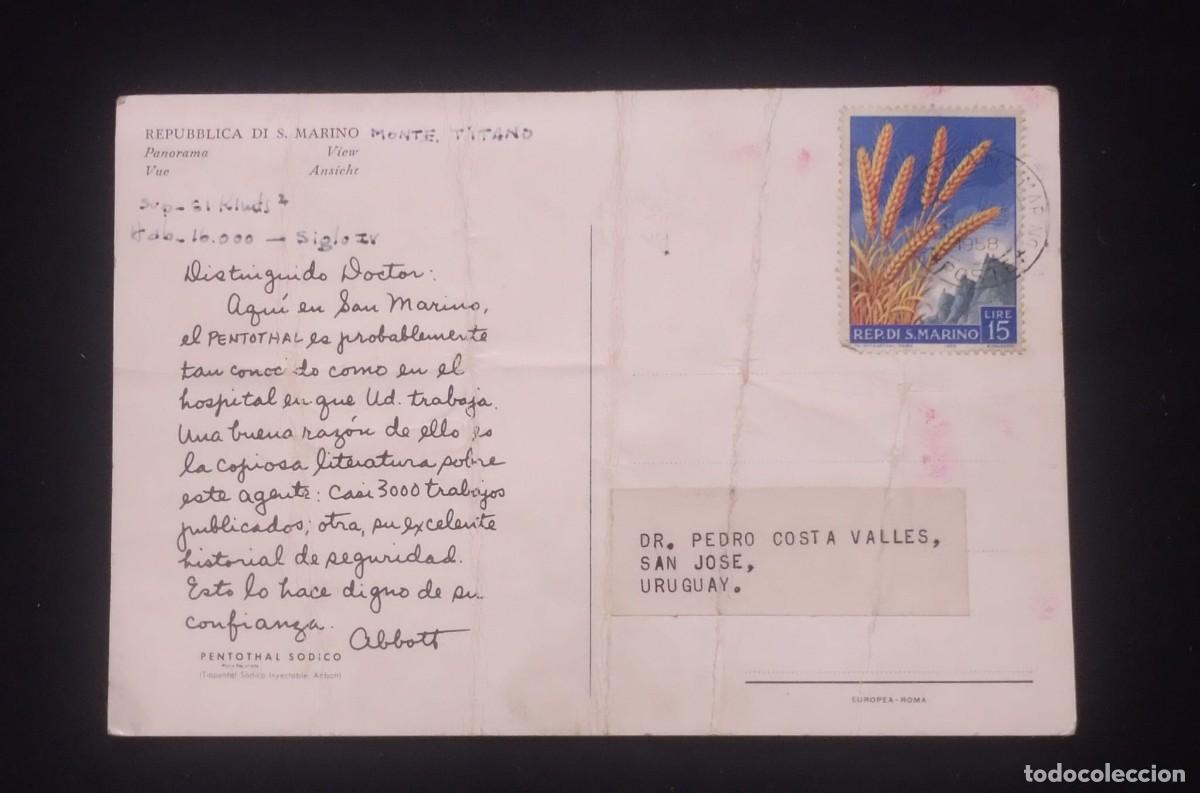 REPUBBLICA DI S. MARINO MONTE. TITANO
Panorama View
Vue Ansicht
Sup-61 Kluds 2
Hab-16.000 — Siglo IV
Distinguido Doctor:
Aquí en San Marino,
el PENTOTHAL es probablemente
tan conocido como en el
hospital en que Ud. trabaja.
Una buena razón de ello es
la copiosa literatura sobre
este agente: Casi 3000 trabajos
publicados; otra, su excelente
historial de seguridad.
Esto lo hace digno de su
confianza.
Abbott
PENTOTHAL SODICO
(Tiopental Sodico Inyectable, Abbott)
1958
LIRE
REP. DI S. MARINO 15
DR. PEDRO COSTA VALLES,
SAN JOSE,
URUGUAY.
EUROPEA-ROMA
todocoleccion